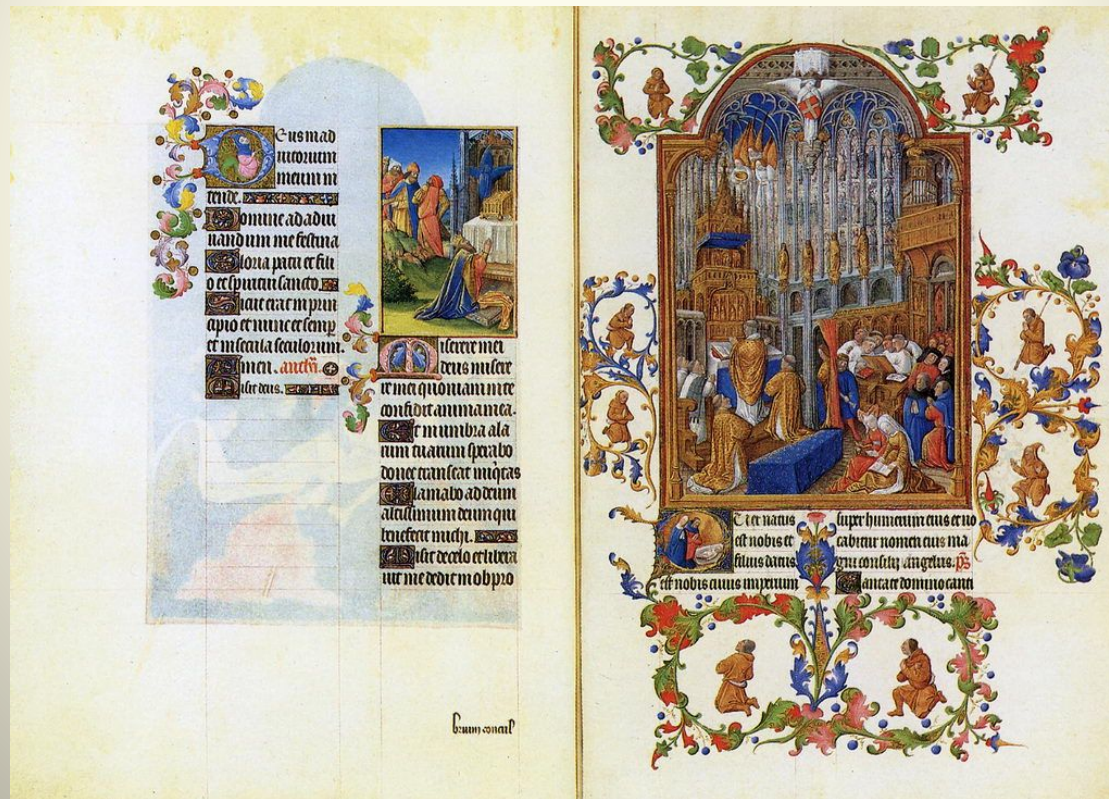 Deus in ad
iutorium
meum in
tende.
Domine ad adiu
uandum me festina
Gloria patri et fili
o et spiritui sancto.
Sicut erat in prin
cipio et nunc et semp
et in secula seculorum.
Amen. 
Misit deus.
Miserere mei
deus misere
re mei quoniam in te
confidit anima mea.
Et in umbra ala
rum tuarum sperabo
donec transeat iniqtas
Clamabo ad deum
altissimum deum qui
benefecit michi.
Misit de celo et libera
uit me dedit in obpro
brium concul
Puer natus
est nobis et
filius datus
est nobis cuius imperium
super humerum eius et uo
cabitur nomen eius ma
gni consilij angelus. ps
Cantate domino canti